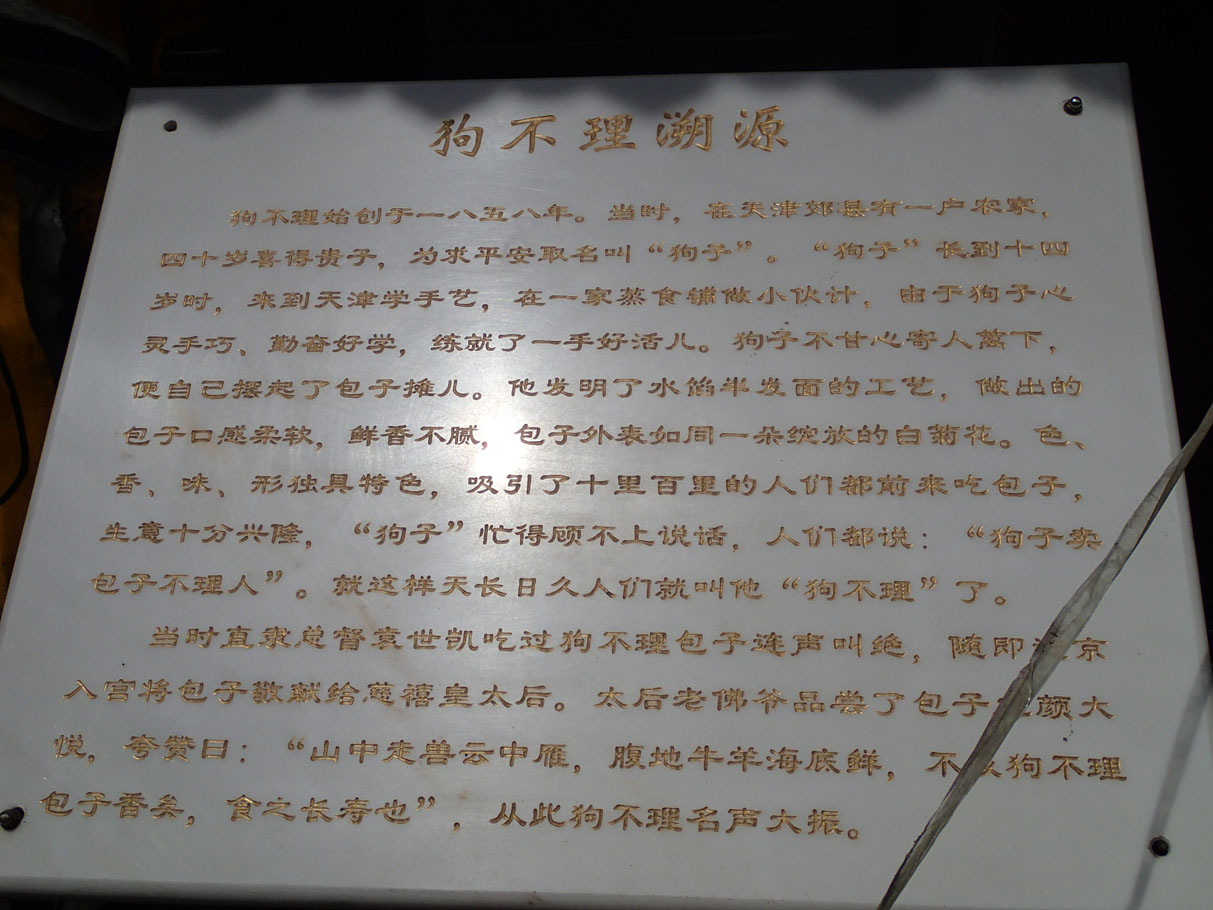 狗不理溯源
狗不理始创于一八五八年。当时，在天津郊县有一户农家，
四十岁喜得贵子，为求平安取名叫“狗子”。“狗子”长到十四
岁时，来到天津学手艺，在一家蒸食铺做小伙计，由于狗子心
灵手巧、勤奋好学，练就了一手好活儿。狗子不甘心寄人篱下，
便自己摆起了包子摊儿。他发明了水馅半发面的工艺，做出的
包子口感柔软，鲜香不腻，包子外表如同一朵绽放的白菊花。色、
香、味、形独具特色，吸引了十里百里的人们都前来吃包子，
生意十分兴隆，“狗子”忙得顾不上说话，人们都说：“狗子卖
包子不理人”。就这样天长日久人们就叫他“狗不理”了。
当时直隶总督袁世凯吃过狗不理包子连声叫绝，随即京
入宫将包子敬献给慈禧皇太后。太后老佛爷品尝了包子颜大
悦，夸赞曰：“山中走兽云中雁，腹地牛羊海底鲜，不狗不理
包子香矣，食之长寿也”，从此狗不理名声大振。